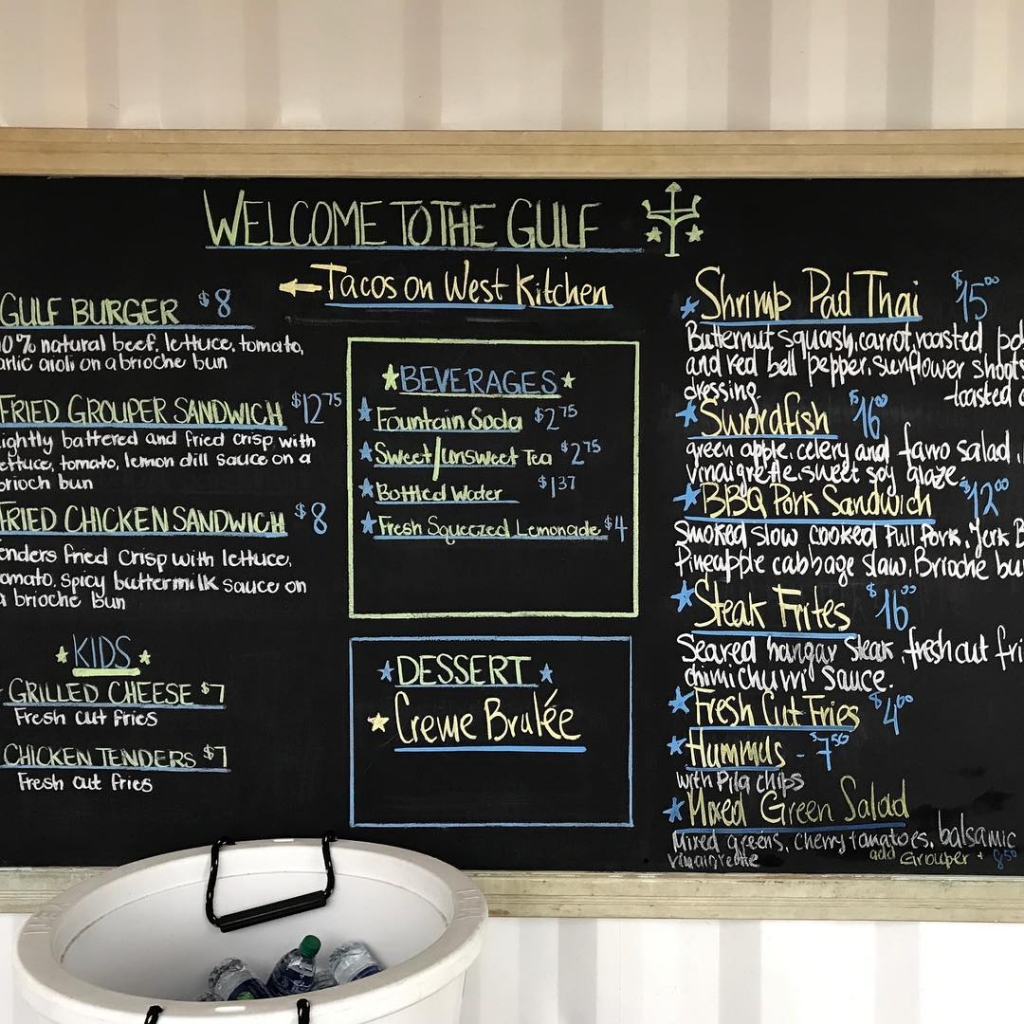 WELCOME TO THE GULF
← Tacos on West Kitchen
GULF BURGER $8
0% natural beef, lettuce, tomato,
arlic aioli on a brioche bun
FRIED GROUPER SANDWICH $12.75
ightly battered and fried crisp with
ettuce, tomato, lemon dill sauce on a
brioch bun
FRIED CHICKEN SANDWICH $8
enders fried crisp with lettuce,
omato, spicy buttermilk sauce on
a brioche bun
KIDS
GRILLED CHEESE $7
Fresh cut fries
CHICKEN TENDERS $7
Fresh cut fries
BEVERAGES
Fountain Soda $2.75
Sweet/unsweet Tea $2.75
Bottled Water $1.37
Fresh Squeezed Lemonade $4
DESSERT
Creme Brulée
Shrimp Pad Thai $15.00
Butternut squash, carrot, roasted
and red bell pepper, sunflower shoots
dressing. -toasted
Swordfish $16.00
green apple, celery and farro salad,
vinaigrette, sweet soy glaze.
BBQ Pork Sandwich $12.00
Smoked slow cooked Pull Pork, Jerk B
Pineapple cabbage slaw, Brioche bu
Steak Frites $16.00
Seared hangar Steak, fresh cut fri
chimichurri sauce.
Fresh Cut Fries $4.00
Hummus - $7.50
with Pita chips
Mixed Green Salad
Mixed greens, cherry tomatoes, balsamic
vinaigrette add Grouper + 8.50